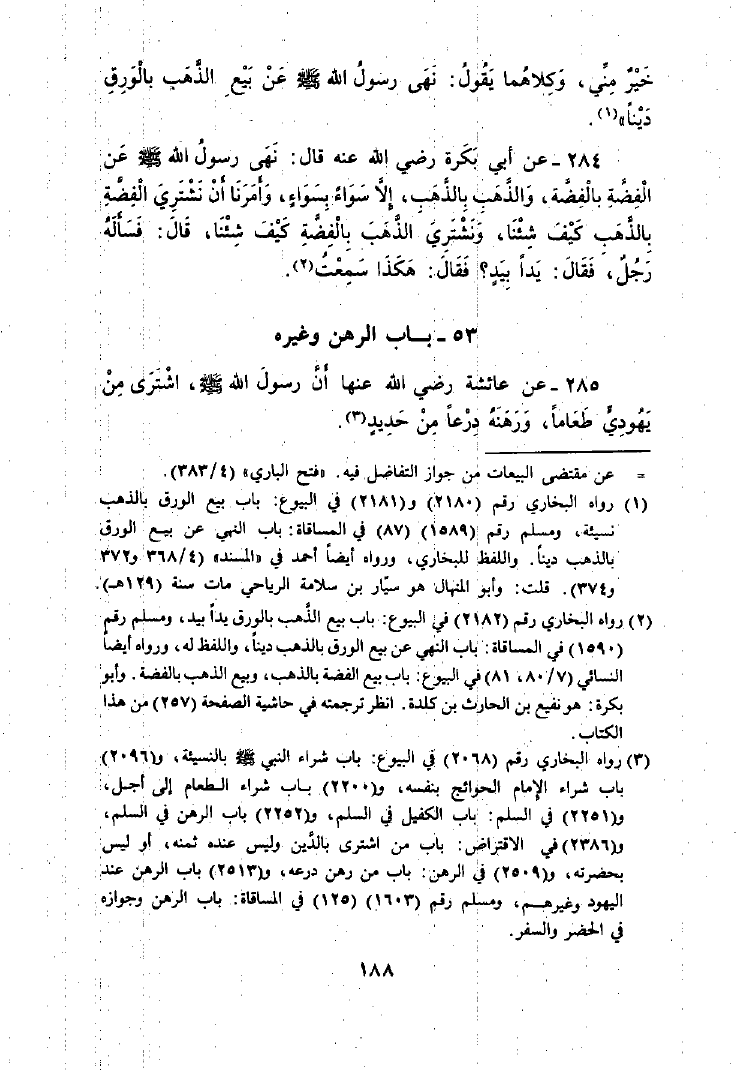 خَيْرٌ مِنِّي، وَكِلاهُما يَقُولُ: نَهَى رسولُ الله ﷺ عَنْ بَيْعِ الذَّهَبِ بالْوَرِقِ
دَيْناً»(١).
٢٨٤ ـ عن أبي بَكَرة رضي الله عنه قال: نَهَى رسولُ الله ﷺ عَن
الْفِضَّةِ بالْفِضَّة، وَالذَّهَبِ بِالذَّهَبِ، إلَّا سَوَاءً بِسَوَاءٍ، وَأَمَرَنَا أَنْ نَشْتَرِيَ الْفِضَّةَ
بِالذَّهَبِ كَيْفَ شِئْنَا، وَنَشْتَرِيَ الذَّهَبَ بِالْفِضَّةِ كَيْفَ شِئْنَا، قَالَ: فَسَأَلَهُ
رَجُلٌ، فَقَالَ: يَداً بِيَدٍ؟ فَقَالَ: هَكَذَا سَمِعْتُ(٢).
٥٣ ـ بـاب الرهن وغيره
٢٨٥ ـ عن عائشة رضي الله عنها أنَّ رسولَ الله ﷺ، اشْتَرَى مِنْ
يَهُودِيٍّ طَعَاماً، وَرَهَنَهُ دِرْعاً مِنْ حَدِيدٍ(٣).
= عن مقتضى البيعات من جواز التفاضل فيه. «فتح الباري» (٣٨٣/٤).
(١) رواه البخاري رقم (٢١٨٠) و(٢١٨١) في البيوع: باب بيع الورق بالذهب
نسيئة، ومسلم رقم (١٥٨٩) (٨٧) في المساقاة: باب النهي عن بيع الورق
بالذهب ديناً. واللفظ للبخاري، ورواه أيضاً أحمد في «المسند» (٣٦٨/٤ و٣٧٢
و٣٧٤). قلت: وأبو المنهال هو سيّار بن سلامة الرياحي مات سنة (١٢٩هـ).
(٢) رواه البخاري رقم (٢١٨٢) في البيوع: باب بيع الذَّهب بالورق يداً بيد، ومسلم رقم
(١٥٩٠) في المساقاة: باب النهي عن بيع الورق بالذهب ديناً، واللفظ له، ورواه أيضاً
النسائي (٨٠/٧، ٨١) في البيوع: باب بيع الفضة بالذهب، وبيع الذهب بالفضة. وأبو
بكرة: هو نفيع بن الحارث بن كلدة. انظر ترجمته في حاشية الصفحة (٢٥٧) من هذا
الكتاب.
(٣) رواه البخاري رقم (٢٠٦٨) في البيوع: باب شراء النبي ﷺ بالنسيئة، و(٢٠٩٦)
باب شراء الإمام الحوائج بنفسه، و(٢٢٠٠) بـاب شراء الـطعام إلى أجـل،
و(٢٢٥١) في السلم: باب الكفيل في السلم، و(٢٢٥٢) باب الرهن في السلم،
و(٢٣٨٦) في الاقتراض: باب من اشترى بالدَّين وليس عنده ثمنه، أو ليس
بحضرته، و(٢٥٠٩) في الرهن: باب من رهن درعه، و(٢٥١٣) باب الرهن عند
اليهود وغيرهـم، ومسلم رقم (١٦٠٣) (١٢٥) في المساقاة: باب الرهن وجوازه
في الحضر والسفر.
١٨٨